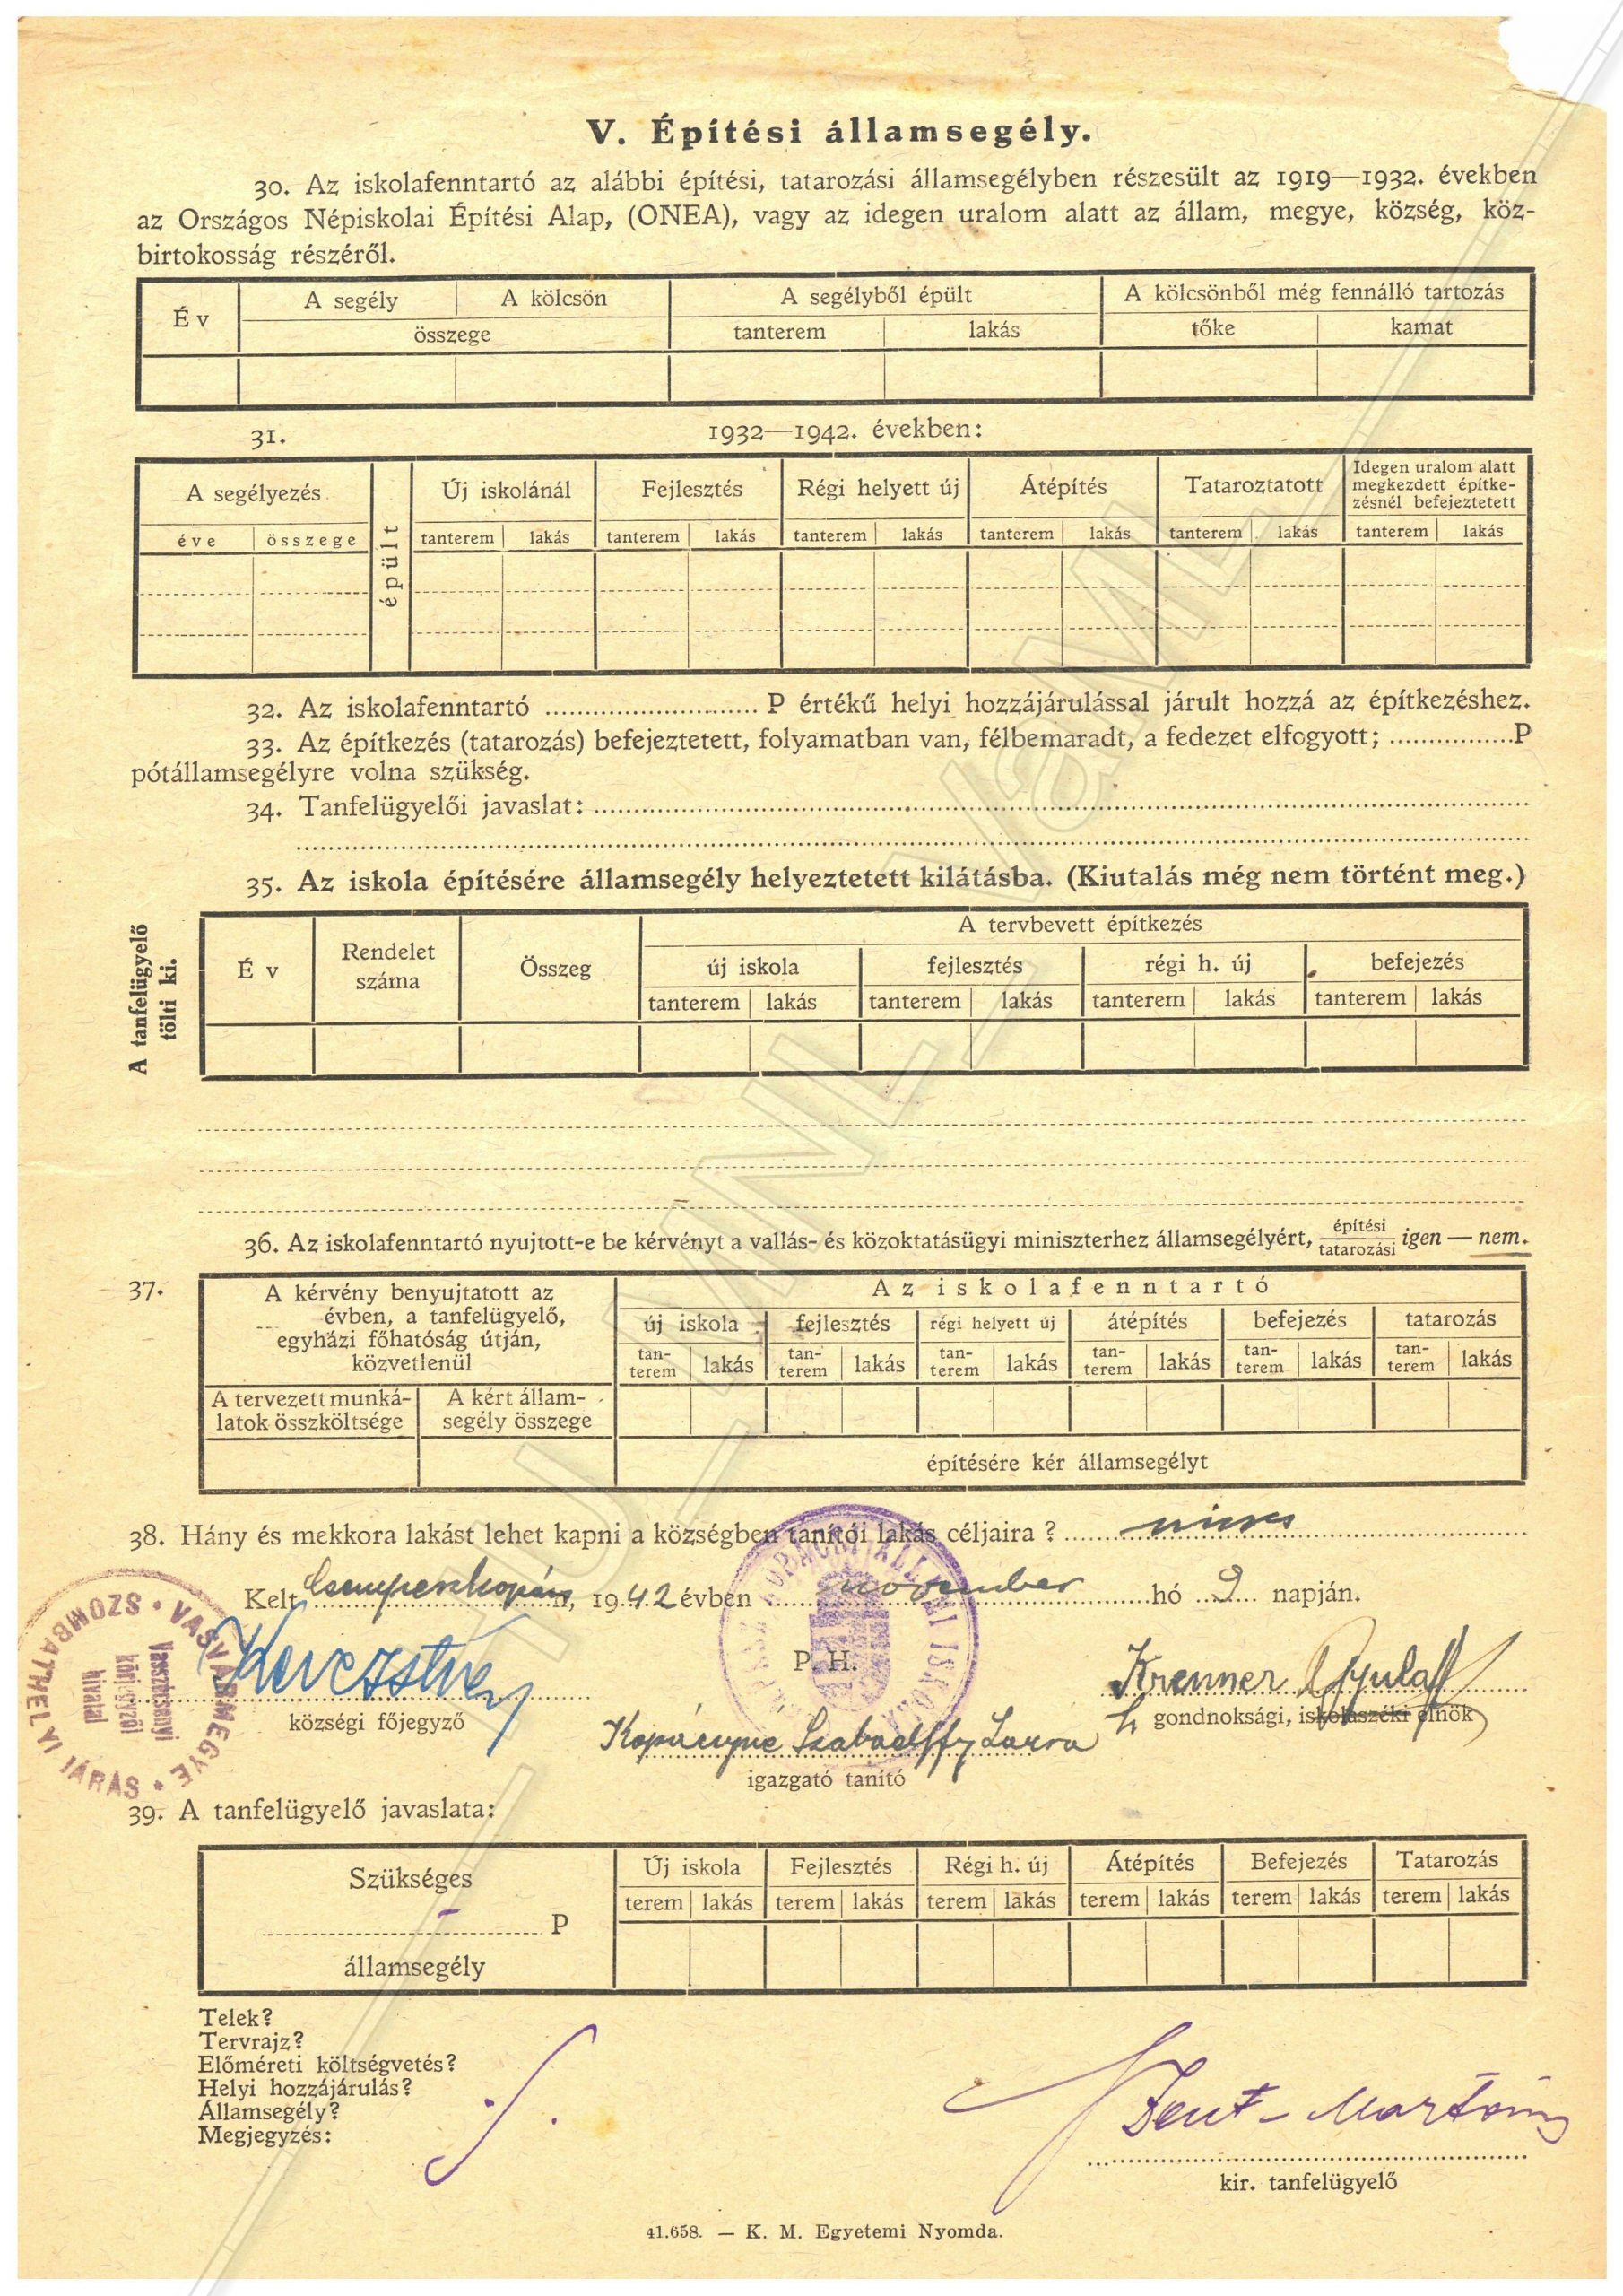 V. Építési államsegély.
30. Az iskolafenntartó az alábbi építési, tatarozási államsegélyben részesült az 1919—1932. években
az Országos Népiskolai Építési Alap, (ONEA), vagy az idegen uralom alatt az állam, megye, község, köz-
birtokosság részéről.
Év
A segély | A kölcsön
összege
A segélyből épült
tanterem | lakás
A kölcsönből még fennálló tartozás
tőke | kamat
31. 1932—1942. években:
A segélyezés
éve | összege
épült
Új iskolánál
tanterem | lakás
Fejlesztés
tanterem | lakás
Régi helyett új
tanterem | lakás
Átépítés
tanterem | lakás
Tataroztatott
tanterem | lakás
Idegen uralom alatt
megkezdett építke-
zésnél befejeztetett
tanterem | lakás
32. Az iskolafenntartó .......................... P értékű helyi hozzájárulással járult hozzá az építkezéshez.
33. Az építkezés (tatarozás) befejeztetett, folyamatban van, félbemaradt, a fedezet elfogyott; ...............P
pótállamsegélyre volna szükség.
34. Tanfelügyelői javaslat:
35. Az iskola építésére államsegély helyeztetett kilátásba. (Kiutalás még nem történt meg.)
A tanfelügyelő
tölti ki.
Év
Rendelet
száma
Összeg
A tervbevett építkezés
új iskola | fejlesztés | régi h. új | befejezés
tanterem | lakás | tanterem | lakás | tanterem | lakás | tanterem | lakás
36. Az iskolafenntartó nyujtott-e be kérvényt a vallás- és közoktatásügyi miniszterhez államsegélyért, építési/tatarozási igen — nem.
37.
A kérvény benyujtatott az
évben, a tanfelügyelő,
egyházi főhatóság útján,
közvetlenül
A tervezett munká-
latok összköltsége
A kért állam-
segély összege
Az iskolafenntartó
új iskola | fejlesztés | régi helyett új | átépítés | befejezés | tatarozás
tan-
terem | lakás | tan-
terem | lakás | tan-
terem | lakás | tan-
terem | lakás | tan-
terem | lakás | tan-
terem | lakás
építésére kér államsegélyt
38. Hány és mekkora lakást lehet kapni a községben tanítói lakás céljaira? nincs
Kelt Csempeszkopács, 1942 évben november hó 9 napján.
VASVÁRMEGYE • SZOMBATHELYI JÁRÁS •
Vasszécsenyi
körjegyzői
hivatal
P. H.
Krenner Gyula
községi főjegyző
h gondnoksági, iskolaszéki elnök
Kopácsyné Szabadffy Laura
igazgató tanító
39. A tanfelügyelő javaslata:
Szükséges
— P
államsegély
Új iskola | Fejlesztés | Régi h. új | Átépítés | Befejezés | Tatarozás
terem | lakás | terem | lakás | terem | lakás | terem | lakás | terem | lakás | terem | lakás
Telek?
Tervrajz?
Előméreti költségvetés?
Helyi hozzájárulás?
Államsegély?
Megjegyzés:
Szent-Mártony
kir. tanfelügyelő
41.658. — K. M. Egyetemi Nyomda.
HU_MNL_VaML